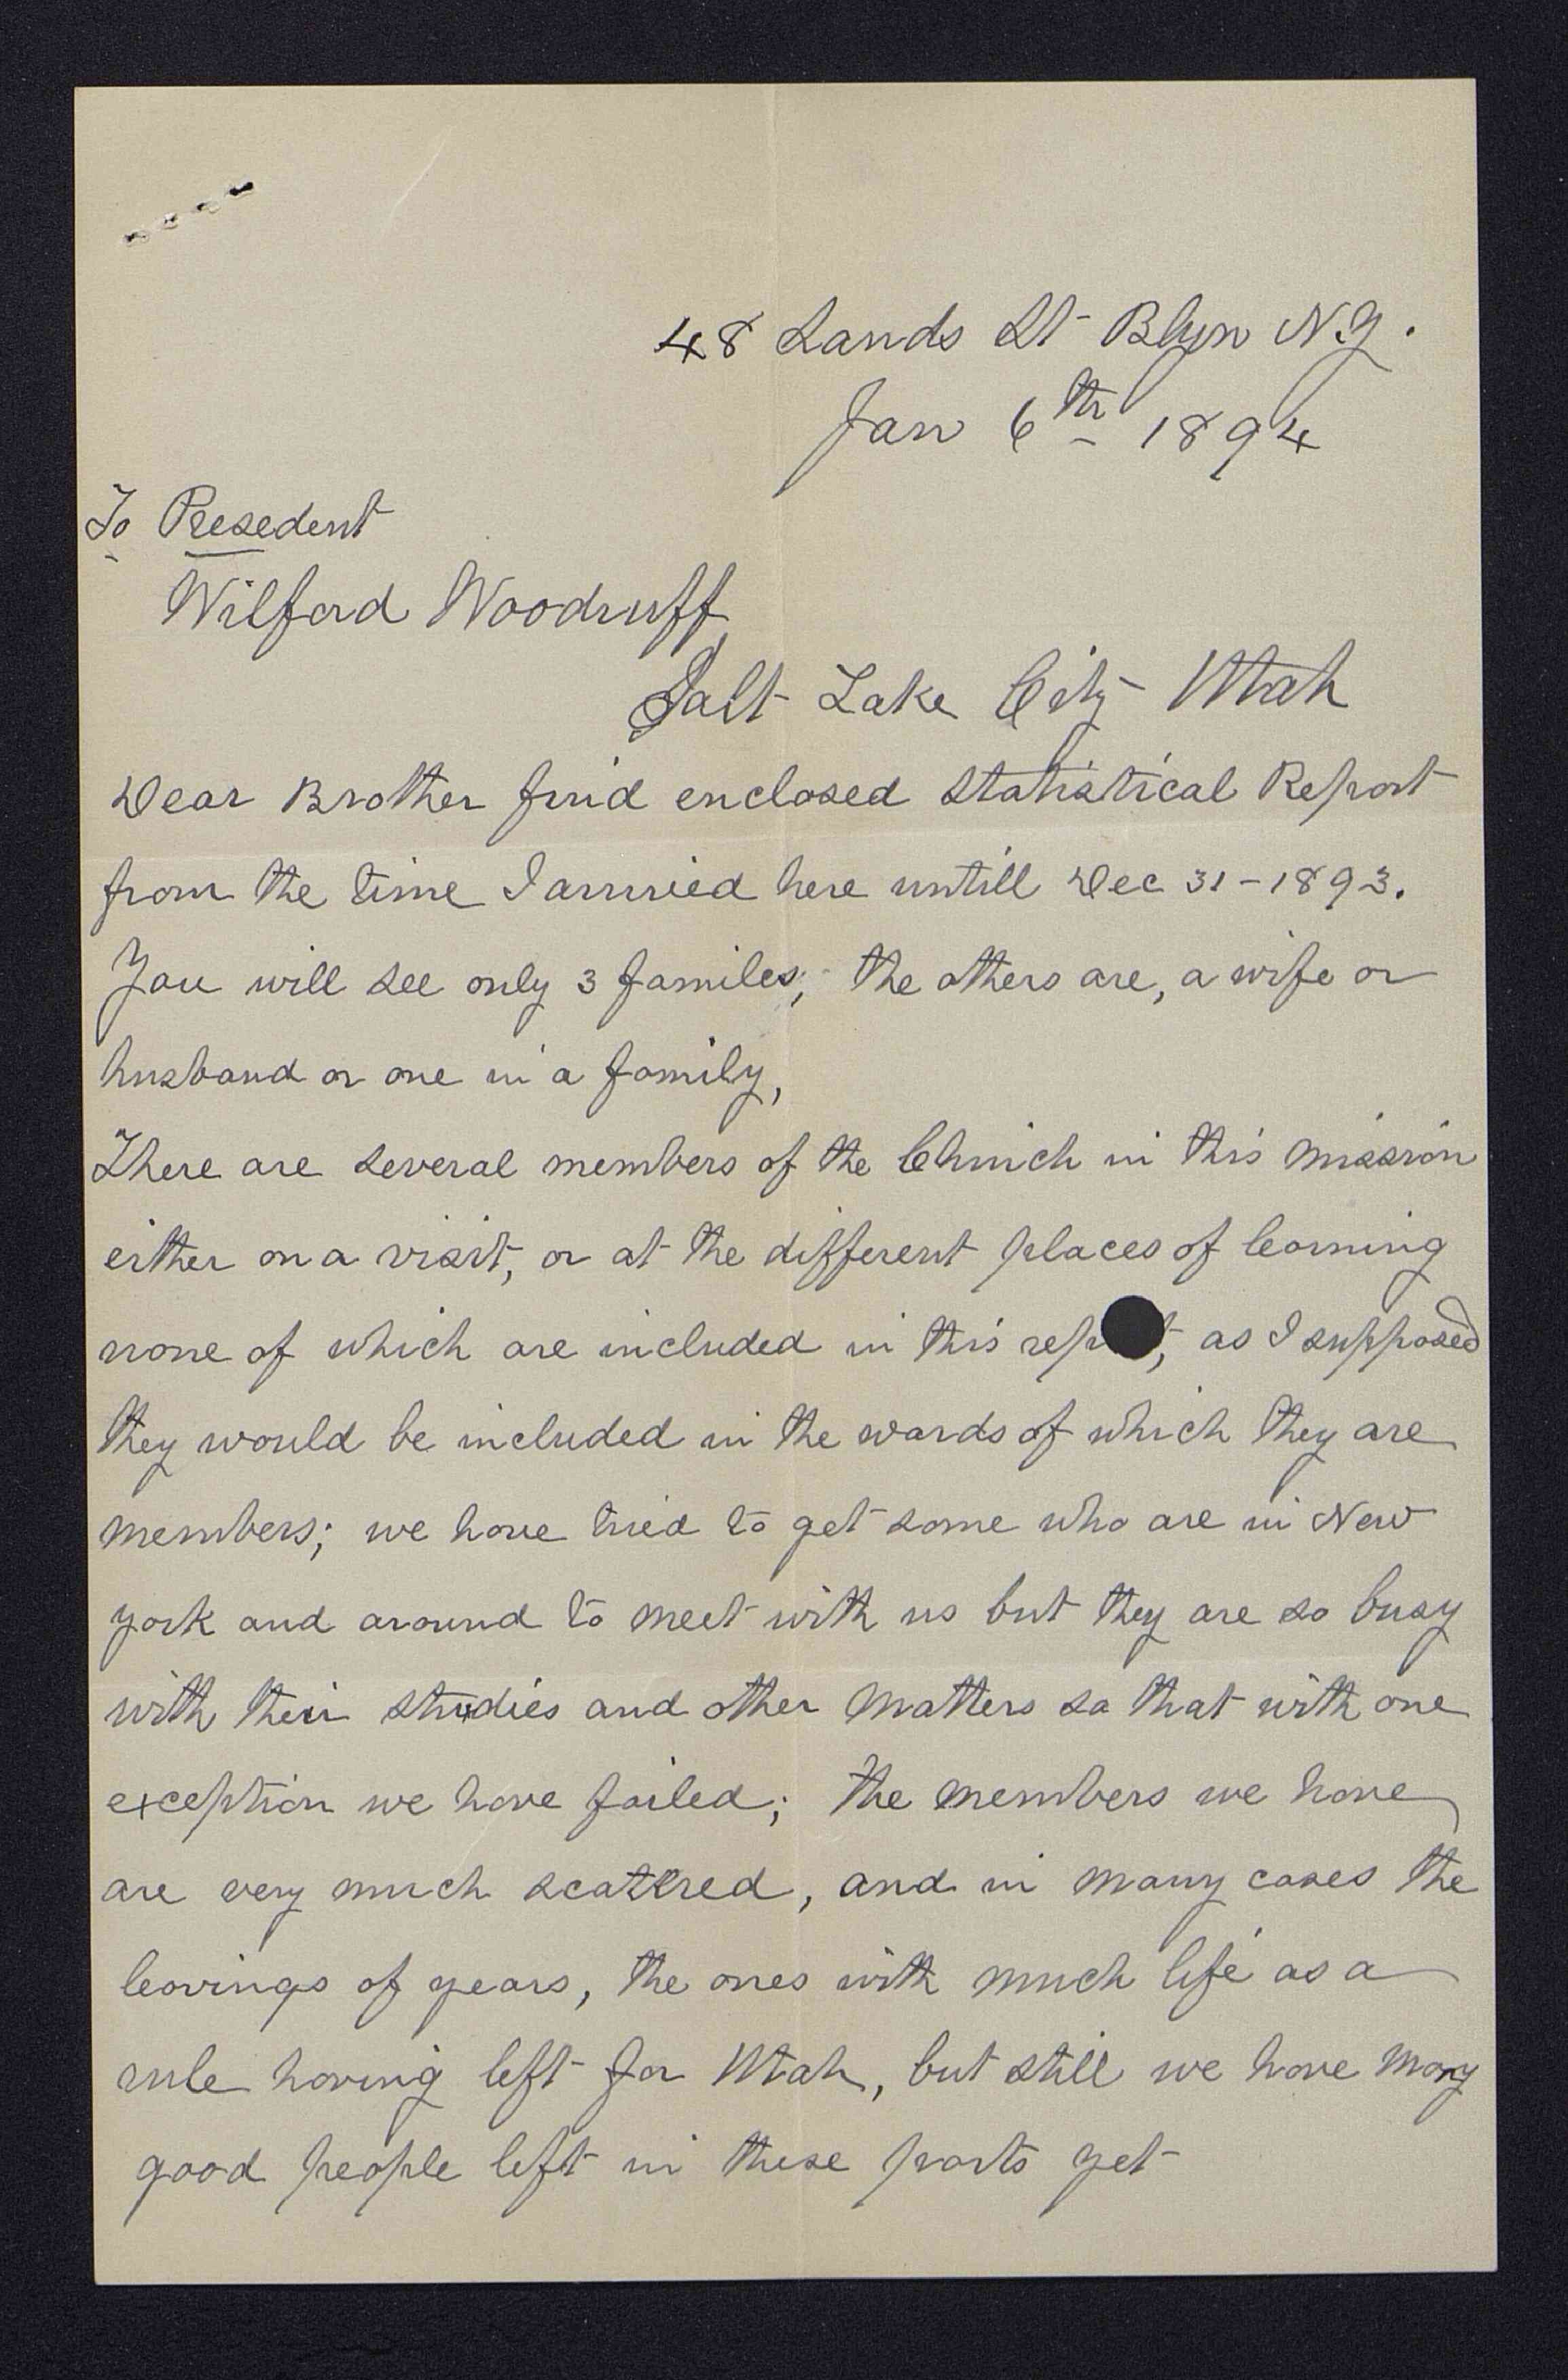 48 Sands St Blyn N.Y.
Jan 6th 1894
To Presedent
Wilford Woodruff
Salt Lake City Utah
Dear Brother find enclosed Statistical Report
from the time I arrived here untill Dec 31-1893.
You will see only 3 familes; the others are, a wife or
husband or one in a family,
There are several members of the Church in this mission
either on a visit, or at the different places of learning
none of which are included in this rep t, as I supposed
they would be included in the wards of which they are
members; we have tried to get some who are in New
york and around to meet with us but they are so busy
with their studies and other matters so that with one
exception we have failed; the members we have
are very much scattered, and in many cases the
leavings of years, the ones with much life as a
rule having left for Utah, but still we have many
good people left in these parts yet